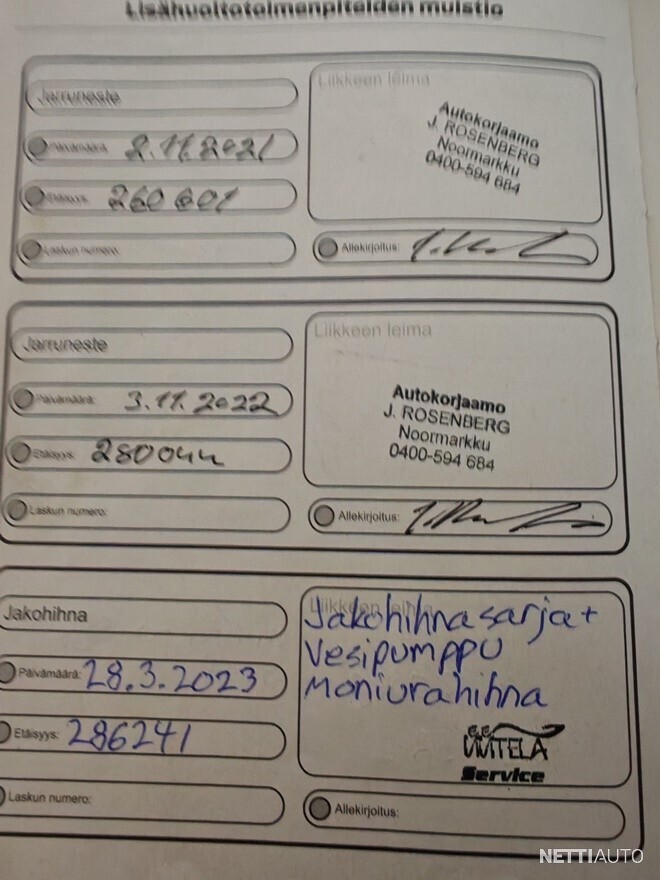 Lisähuoltotoimenpiteiden muistio
Jarruneste
Päivämäärä: 2.11.2021
Etäisyys: 260 601
Laskun numero:
Liikkeen leima
Autokorjaamo
J. ROSENBERG
Noormarkku
0400-594 684
Allekirjoitus:
Jarruneste
Päivämäärä: 3.11.2022
Etäisyys:
Laskun numero:
Liikkeen leima
Autokorjaamo
J. ROSENBERG
Noormarkku
0400-594 684
Allekirjoitus:
Jakohihna
Päivämäärä: 28.3.2023
Etäisyys: 286241
Laskun numero:
Liikkeen leima
Jakohihnasarja +
Vesipumppu
Moniurahihna
Service
Allekirjoitus:
NETTIAUTO